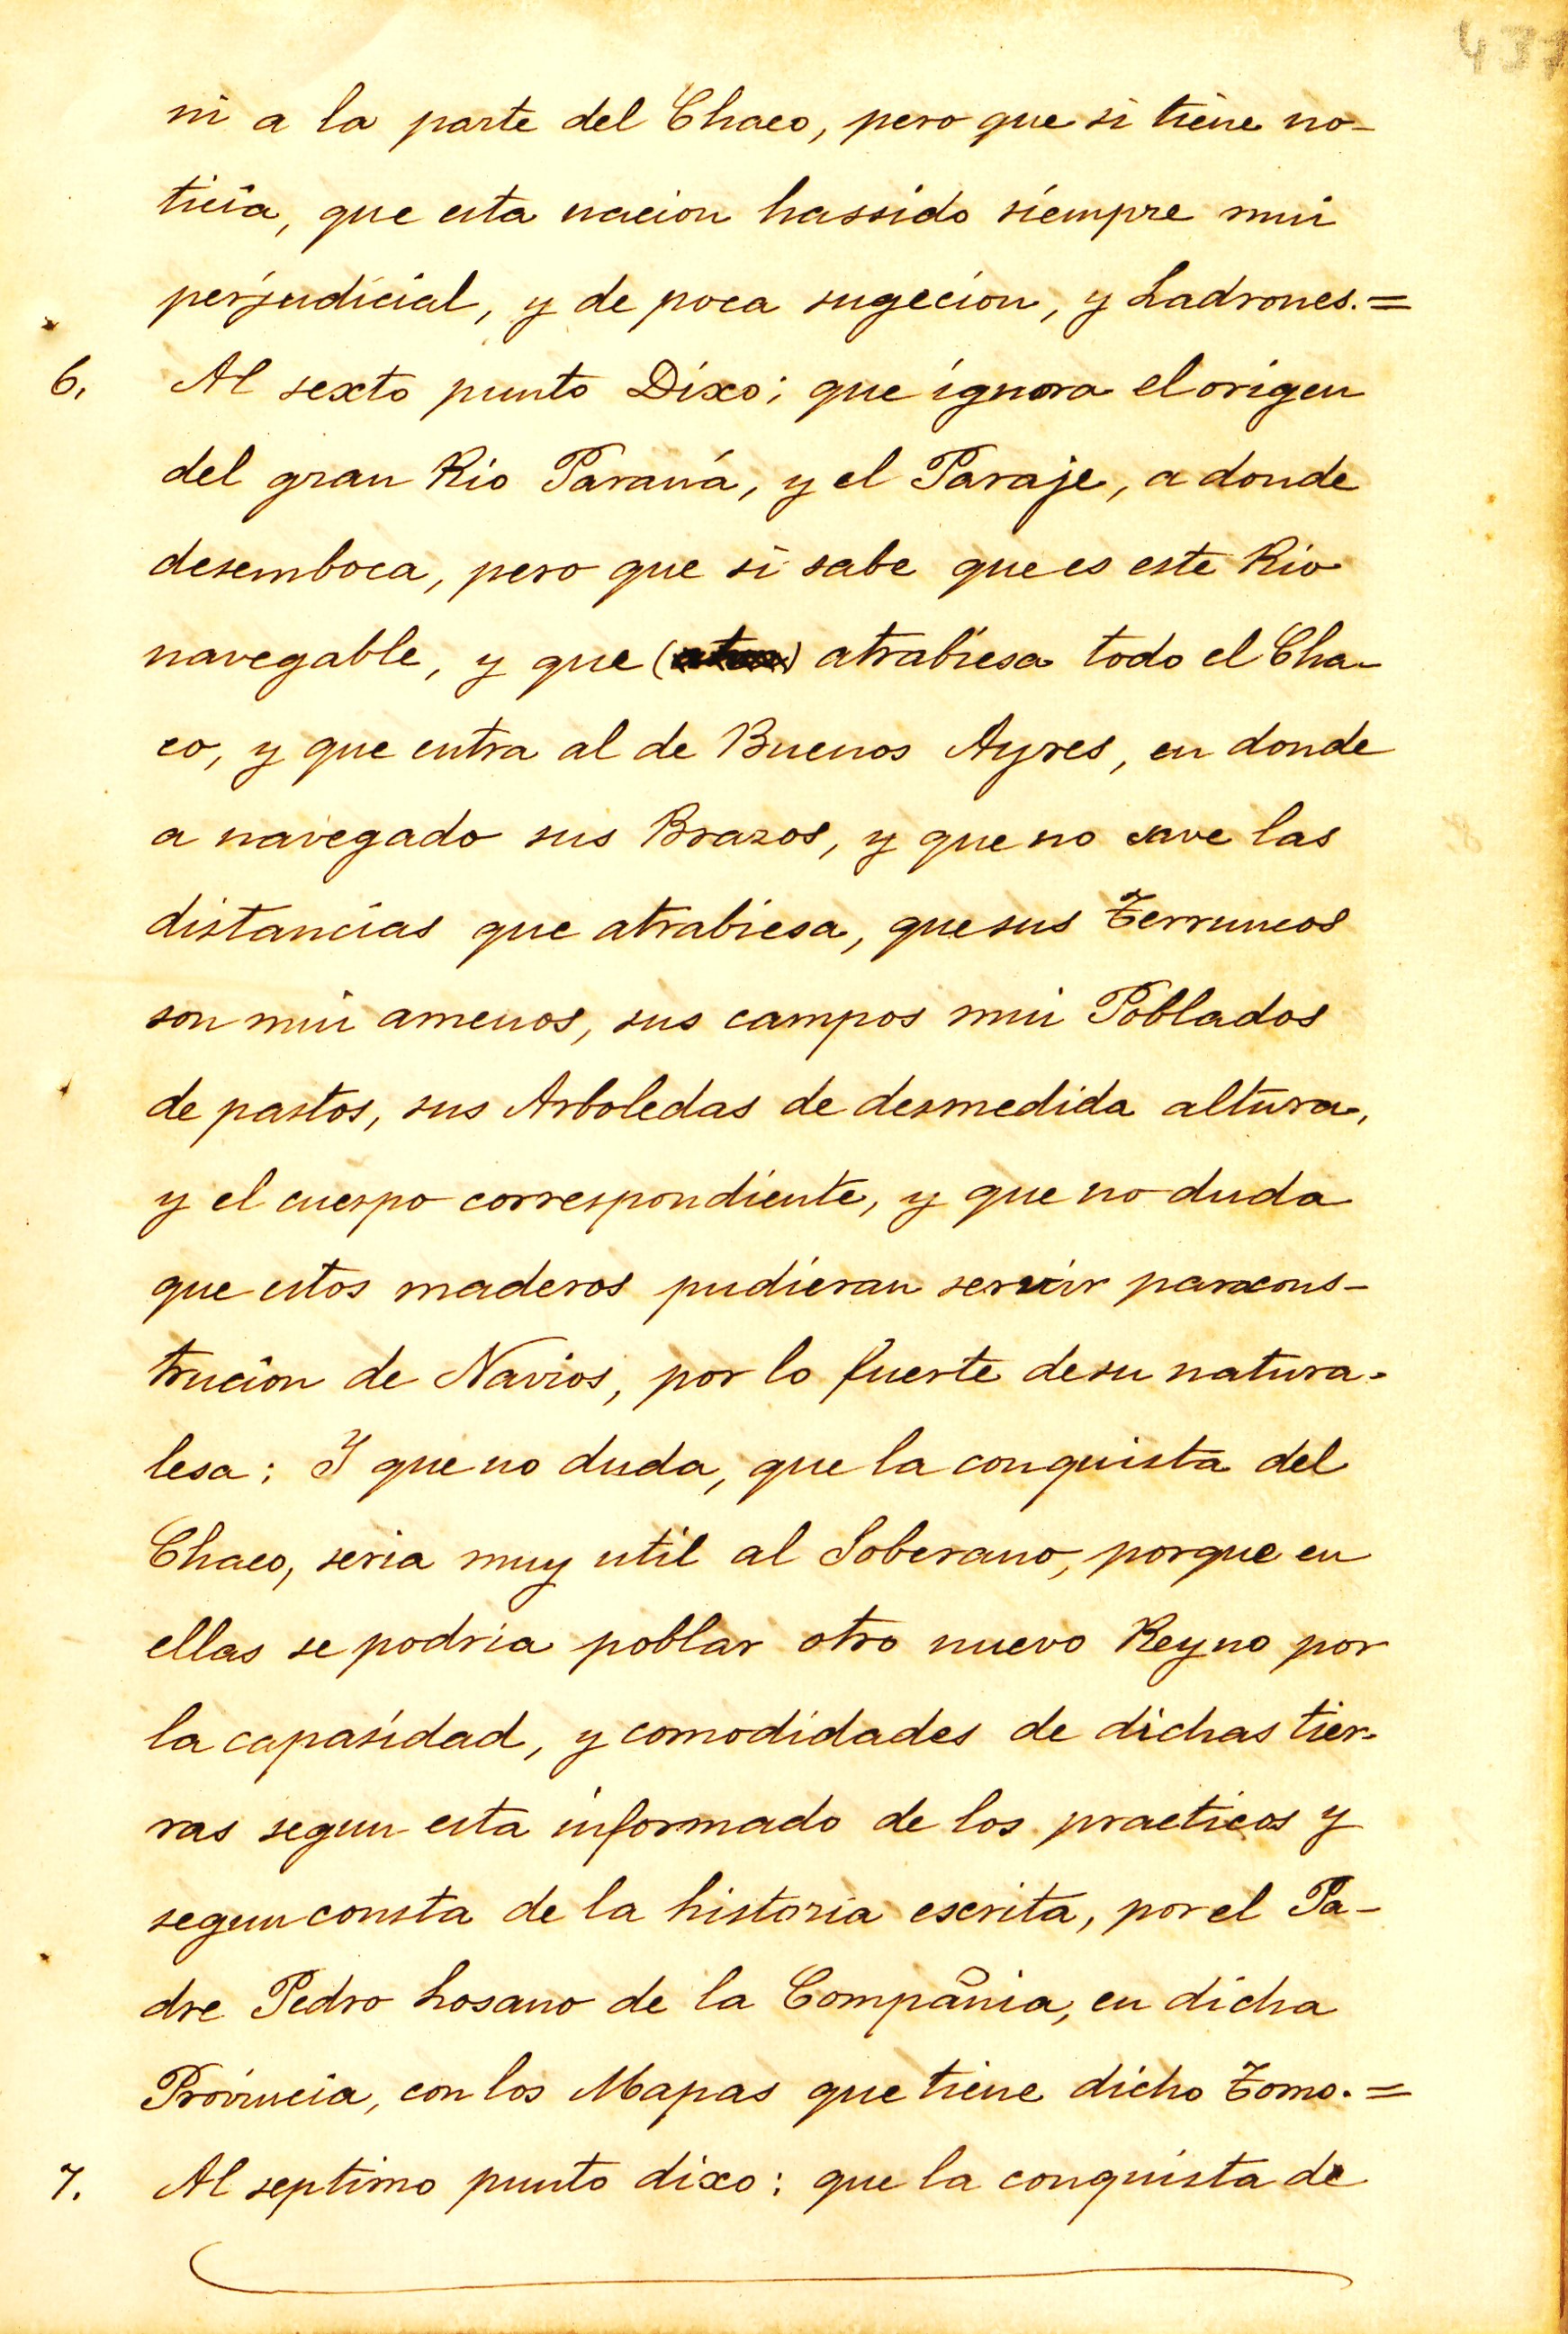 437
ni a la parte del Chaco, pero que si tiene no-
ticia, que esta nacion hassido siempre mui
perjudicial, y de poca sugecion, y Ladrones.=
6. Al sexto punto Dixo; que ignora el origen
del gran Rio Paraná, y el Paraje, a donde
desemboca, pero que si sabe que es este Rio
navegable, y que ( ) atrabiesa todo el Cha-
co, y que entra al de Buenos Ayres, en donde
a navegado sus Brazos, y que no save las
distancias que atrabiesa, que sus Terruneos
son mui amenos, sus campos mui Poblados
de pastos, sus Arboledas de desmedida altura,
y el cuerpo correspondiente, y que no duda
que estos maderos pudieran servir para cons-
trucion de Navios, por lo fuerte de su natura-
lesa: Y que no duda, que la conquista del
Chaco, seria muy util al Soberano, porque en
ellas se podria poblar otro nuevo Reyno por
la capasidad, y comodidades de dichas tier-
ras segun esta informado de los practicos y
segun consta de la historia escrita, por el Pa-
dre Pedro Losano de la Compañia, en dicha
Provincia, con los Mapas que tiene dicho Tomo.=
7. Al septimo punto dixo: que la conquista de